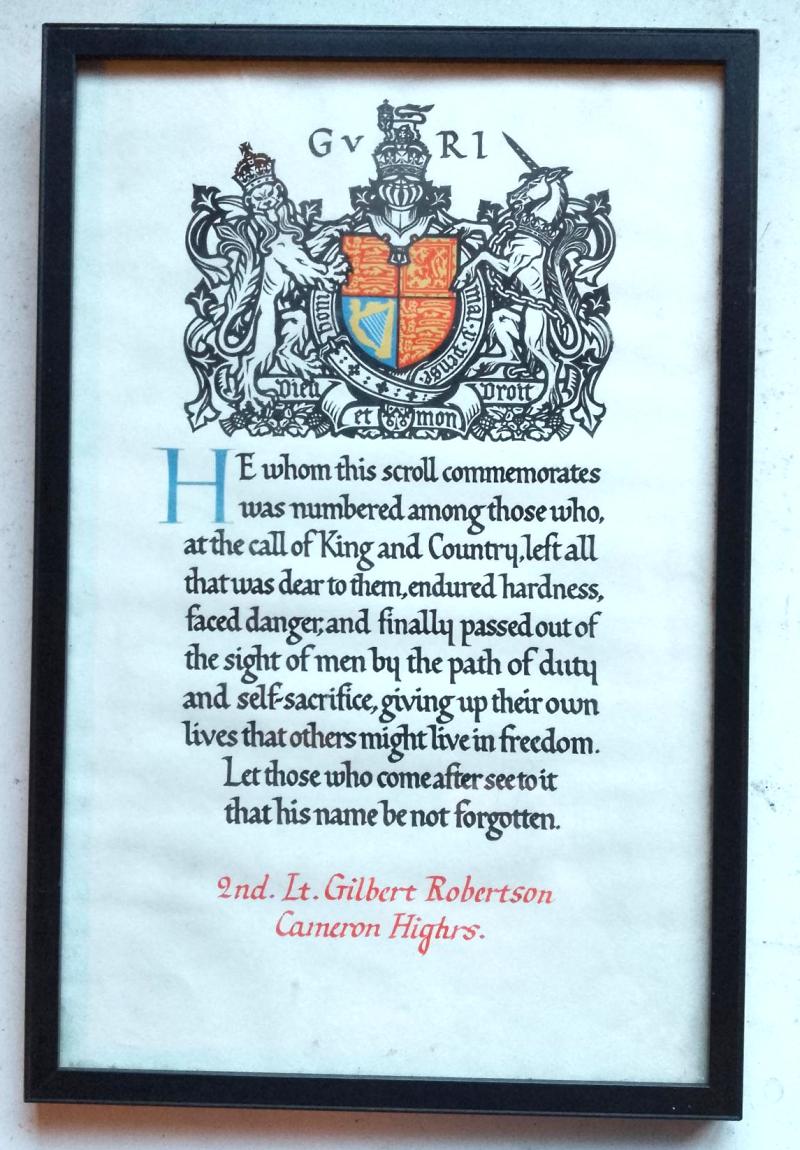 GV RI
Honi
mal y pense
Dieu Droit
et mon
HE whom this scroll commemorates
was numbered among those who,
at the call of King and Country, left all
that was dear to them, endured hardness,
faced danger, and finally passed out of
the sight of men by the path of duty
and self-sacrifice, giving up their own
lives that others might live in freedom.
Let those who come after see to it
that his name be not forgotten.
2nd. Lt. Gilbert Robertson
Cameron Highrs.